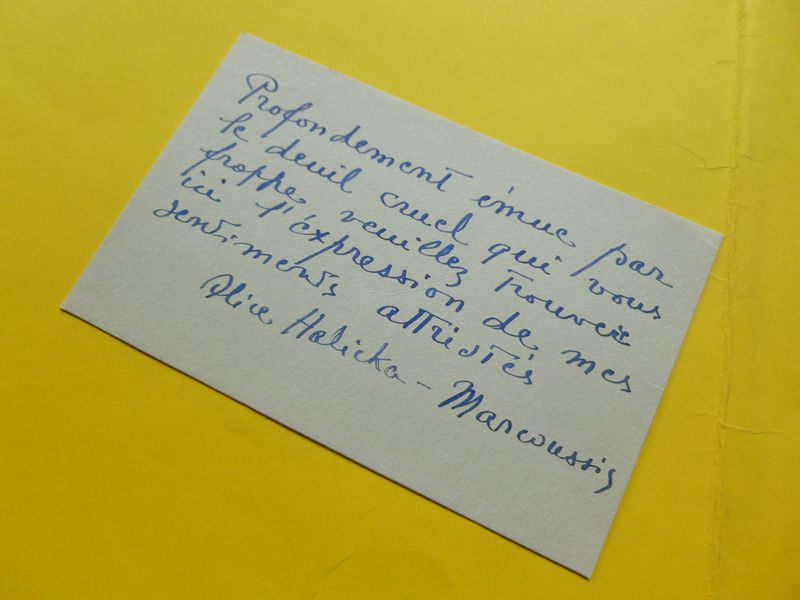 Profondement émue par
le deuil cruel qui vous
frappe veuillez trouver
ici l'expression de mes
sentiments attristés
Alice Halicka - Marcoussis